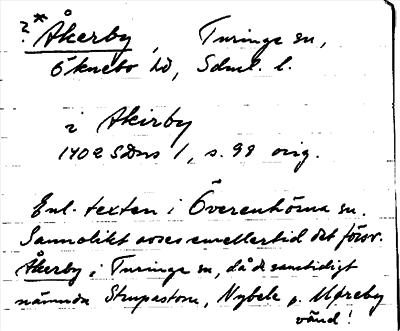 ?* Åkerby, Turinge sn,
Öknebo hd, Sdml. l.
i Akirby
1402 SDns 1, s. 98 orig.
Enl. texten i Överenhörna sn.
Sannolikt avses emellertid det försv.
Åkerby i Turinge sn, då de samtidigt
nämnda Strupastom, Nybele o. Møreby
vänd!